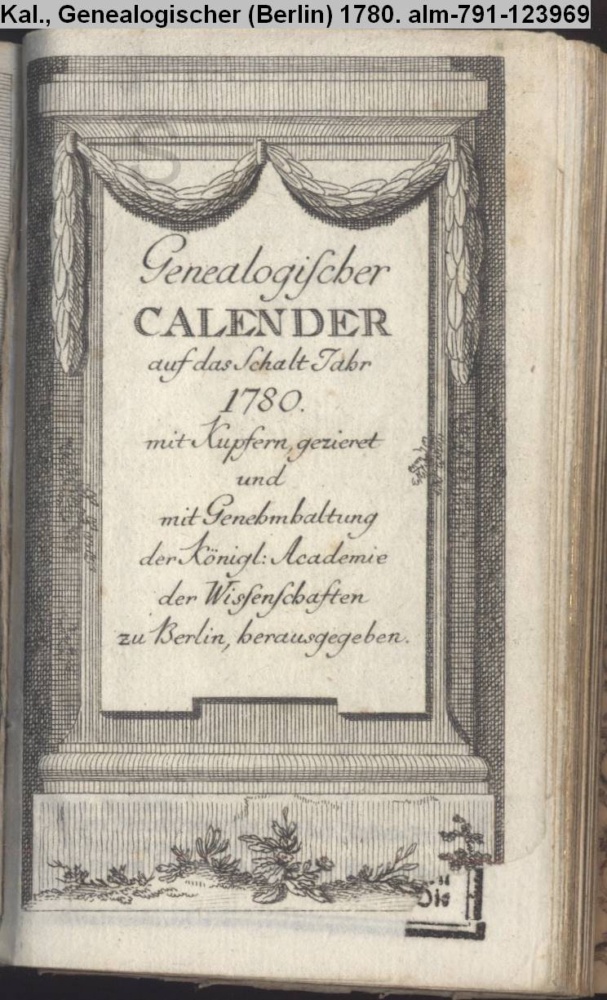 Kal., Genealogischer (Berlin) 1780. alm-791-123969
Genealogiſcher
CALENDER
auf das Schalt Jahr
1780.
mit Kupfern gezieret
und
mit Genehmhaltung
der Königl: Academie
der Wiſſenſchaften
zu Berlin, herausgegeben.